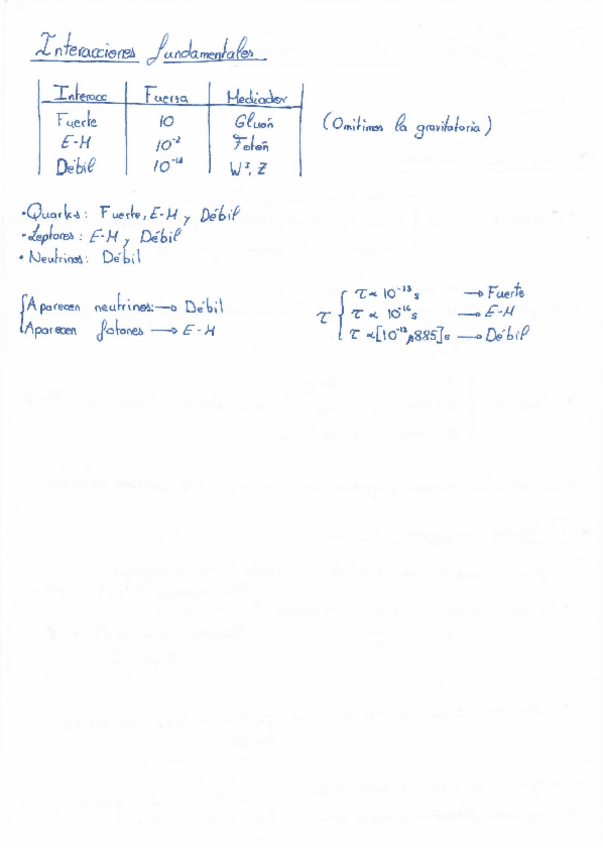 Interacciones fundamentales
Interacc Fuersa Mediador
Fuerte 10 Gluón (Omitimos la gravitatoria)
E-M 10⁻² Fotón
Débil 10⁻¹³ W±, Z
• Quarks: Fuerte, E-M y Débil
• Leptones: E-M y Débil
• Neutrinos: Débil
Aparecen neutrinos: → Débil
Aparecen fotones → E-M
τ { τ ∝ 10⁻²³ s → Fuerte
τ ∝ 10⁻¹⁶ s → E-M
τ ∝ [10⁻¹³, 885] s → Débil